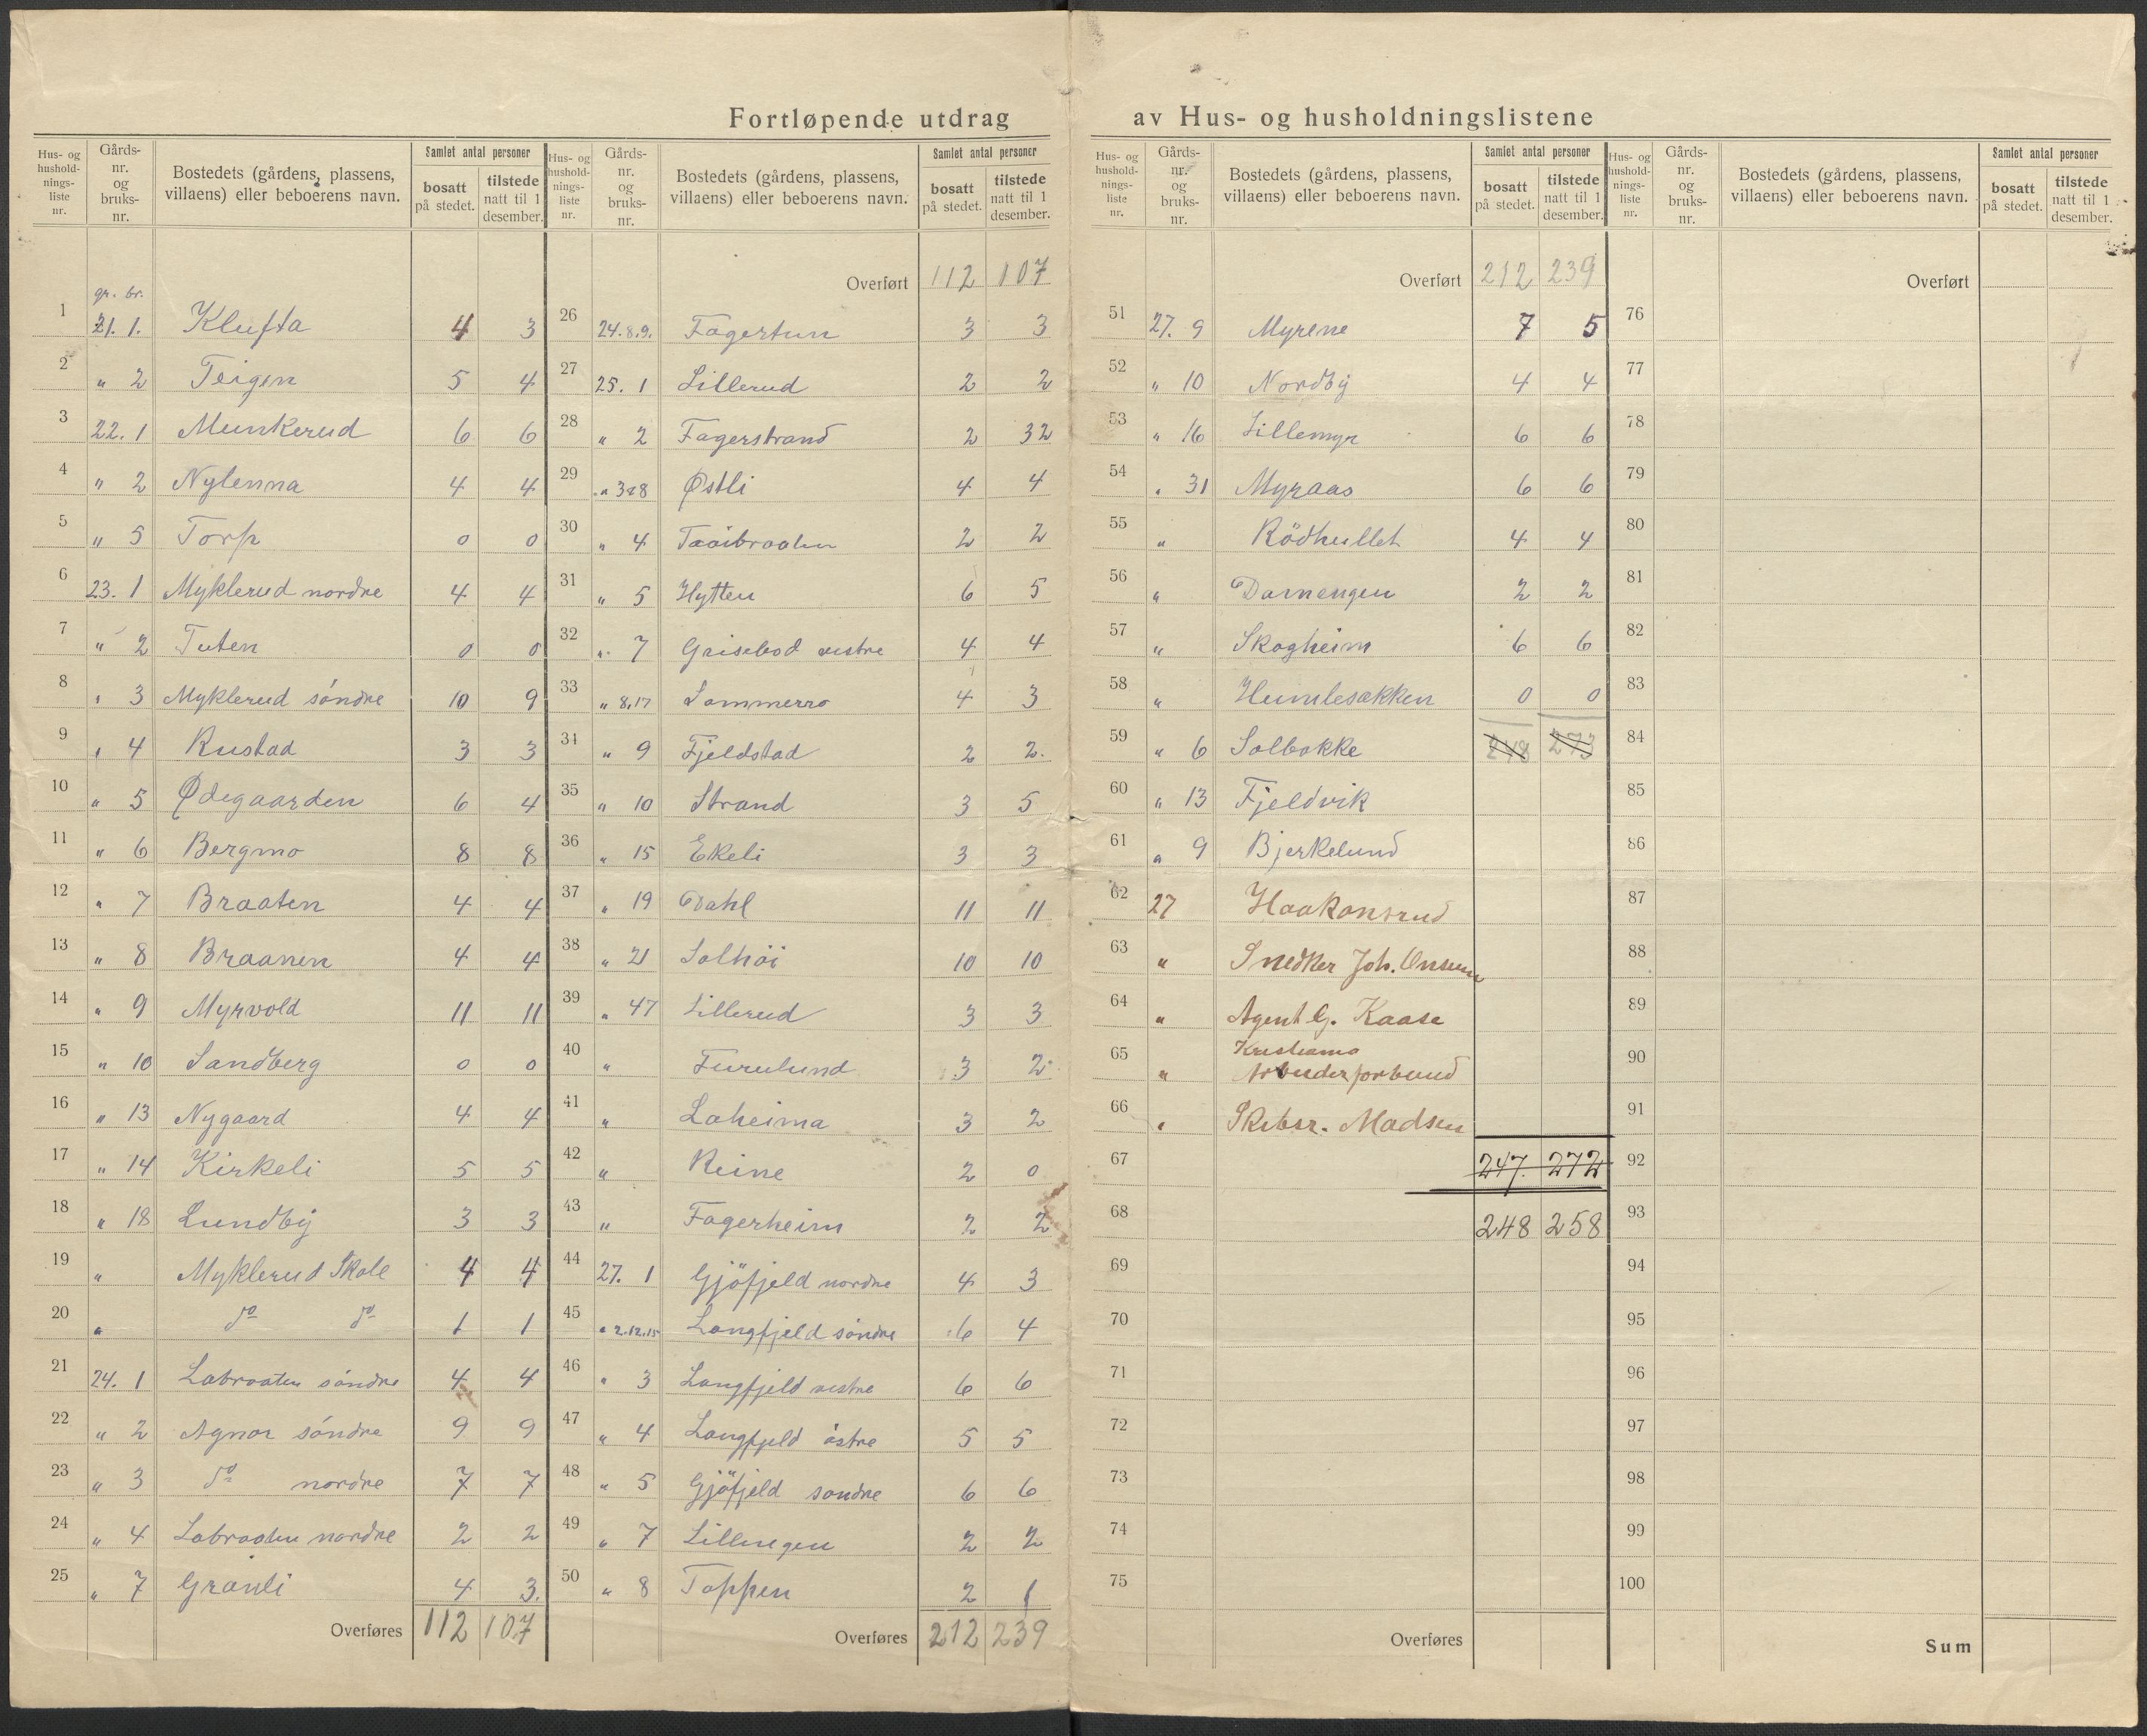 Fortløpende utdrag av Hus- og husholdningslistene
Hus- og hushold-nings-liste nr. Gårds-nr. og bruks-nr. Bostedets (gårdens, plassens, villaens) eller beboerens navn. Samlet antal personer bosatt på stedet. tilstede natt til 1 desember.
gr. br.
1 21. 1. Klufta 4 3
2 " 2 Teigen 5 4
3 22. 1 Munkerud 6 6
4 " 2 Nylenna 4 4
5 " 5 Torp 0 0
6 23. 1 Myklerud nordre 4 4
7 " 2 Tuten 0 0
8 " 3 Myklerud söndre 10 9
9 " 4 Rustad 3 3
10 " 5 Ødegaarden 6 4
11 " 6 Bergmo 8 8
12 " 7 Braaten 4 4
13 " 8 Braanen 4 4
14 " 9 Myrvold 11 11
15 " 10 Sandberg 0 0
16 " 13 Nygaard 4 4
17 " 14 Kirkeli 5 5
18 " 18 Lundby 3 3
19 " Myklerud Skole 4 4
20 " do do 1 1
21 24. 1 Labraaten söndre 4 4
22 " 2 Agnor söndre 9 9
23 " 3 do nordre 7 7
24 " 4 Labraaten nordre 2 2
25 " 7 Granli 4 3.
Overføres 112 107
Hus- og hushold-nings-liste nr. Gårds-nr. og bruks-nr. Bostedets (gårdens, plassens, villaens) eller beboerens navn. Samlet antal personer bosatt på stedet. tilstede natt til 1 desember.
Overført 112 107
26 24.8.9. Fagertun 3 3
27 25. 1 Lillerud 2 2
28 " 2 Fagerstrand 2 32
29 " 3+8 Østli 4 4
30 " 4 2 2
31 " 5 Hytten 6 5
32 " 7 Grisebod vestre 4 4
33 " 8,17 Sommerro 4 3
34 " 9 Fjeldstad 2 2.
35 " 10 Strand 3 5
36 " 15 Ekeli 3 3
37 " 19 Dahl 11 11
38 " 21 Solhöi 10 10
39 " 47 Lillerud 3 3
40 " Furulund 3 2
41 " Laheima 3 2
42 " Reine 2 0
43 " Fagerheim 2 2
44 27. 1 Gjöfjeld nordre 4 3
45 " 2.12.15 Langfjeld söndre 6 4
46 " 3 Langfjeld vestre 6 6
47 " 4 Langfjeld östre 5 5
48 " 5 Gjöfjeld söndre 6 6
49 " 7 Lillengen 2 2
50 " 8 Toppen 2 1
Overføres 212 239
Hus- og hushold-nings-liste nr. Gårds-nr. og bruks-nr. Bostedets (gårdens, plassens, villaens) eller beboerens navn. Samlet antal personer bosatt på stedet. tilstede natt til 1 desember.
Overført 212 239
51 27. 9 Myrene 7 5
52 " 10 Nordby 4 4
53 " 16 Lillemyr 6 6
54 " 31 Myraas 6 6
55 " Rödhullet 4 4
56 " Damengen 2 2
57 " Skogheim 6 6
58 " Humlesekken 0 0
59 " 6 Solbakke 248 273
60 " 13 Fjeldvik
61 " 9 Bjerkelund
62 27 Haakonsrud
63 " Snedker Joh. Onsum
64 " Agent G. Kaase
65 " Kristiania Arbeiderforbund
66 " Skibsr. Madsen
67 247. 272
68 248 258
69
70
71
72
73
74
75
Overføres
Hus- og hushold-nings-liste nr. Gårds-nr. og bruks-nr. Bostedets (gårdens, plassens, villaens) eller beboerens navn. Samlet antal personer bosatt på stedet. tilstede natt til 1 desember.
Overført
76
77
78
79
80
81
82
83
84
85
86
87
88
89
90
91
92
93
94
95
96
97
98
99
100
Sum